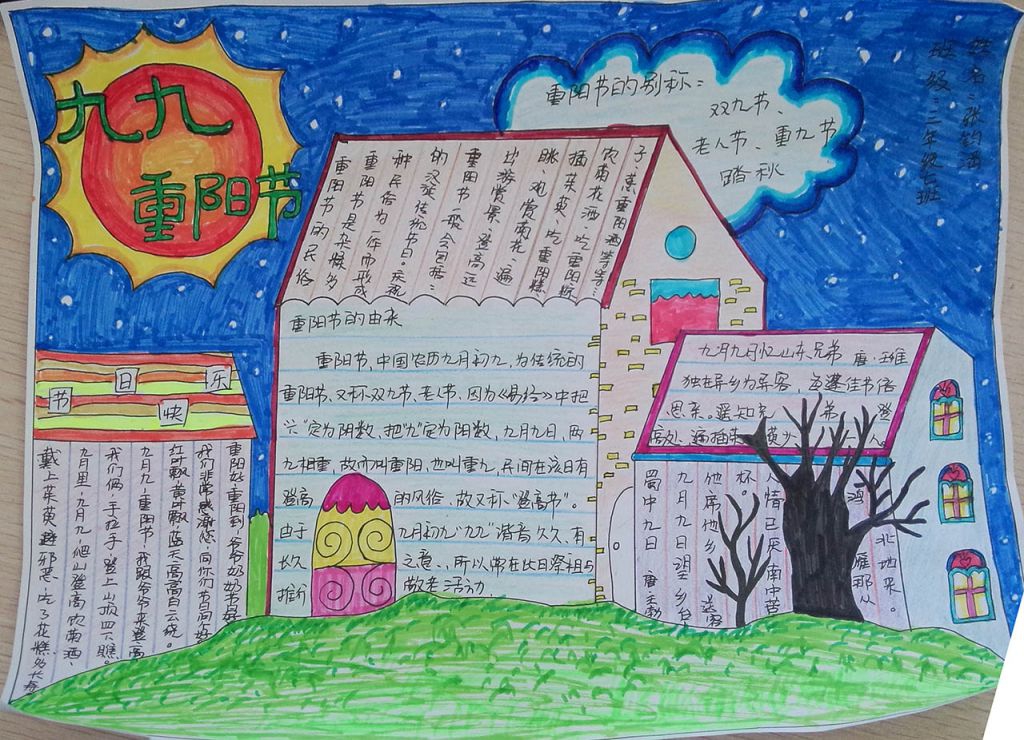 九九
重阳节
重阳节的别称:
双九节、
老人节、重九节
踏秋
班级:三年级七班
重阳节的民俗
重阳节是杂糅多
种民俗为一体而形成
的汉族传统节日。庆祝
重阳节一般会包括:
出游赏景、登高远
眺、观赏菊花、遍
插茱萸、吃重阳糕
饮菊花酒、吃重阳
子、蒸重阳酒等等…
重阳节的由来
重阳节,中国农历九月初九,为传统的
重阳节、又称双九节、老人节、因为《易经》中把
"六"定为阴数,把"九"定为阳数,九月九日,两
九相重,故而叫重阳,也叫重九,民间在该日有
登高的风俗,故又称"登高节"。
由于九月初九"九九"谐音久久,有
长久之意、所以常在此日祭祖与
推行敬老活动。
九月九日忆山东兄弟 唐·王维
独在异乡为异客,每逢佳节倍
思亲。遥知兄弟登
高处,遍插茱萸少一人
蜀中九日 唐 王勃
九月九日望乡台
他席他乡送客
杯。
人情已厌南中苦
鸿雁那从
北地来。
节日快乐
重阳好,重阳到,爷爷奶奶节日好
我们非常感谢您,向你们节日问个好
红叶飘,黄叶飘,蓝天高高白云绕。
九月九,重阳节,我跟爷爷来登高
我们俩,手拉手,登上山顶四下瞧。
九月里,九月九,爬山登高饮菊酒,
戴上茱萸避邪恶,吃了花糕多长寿